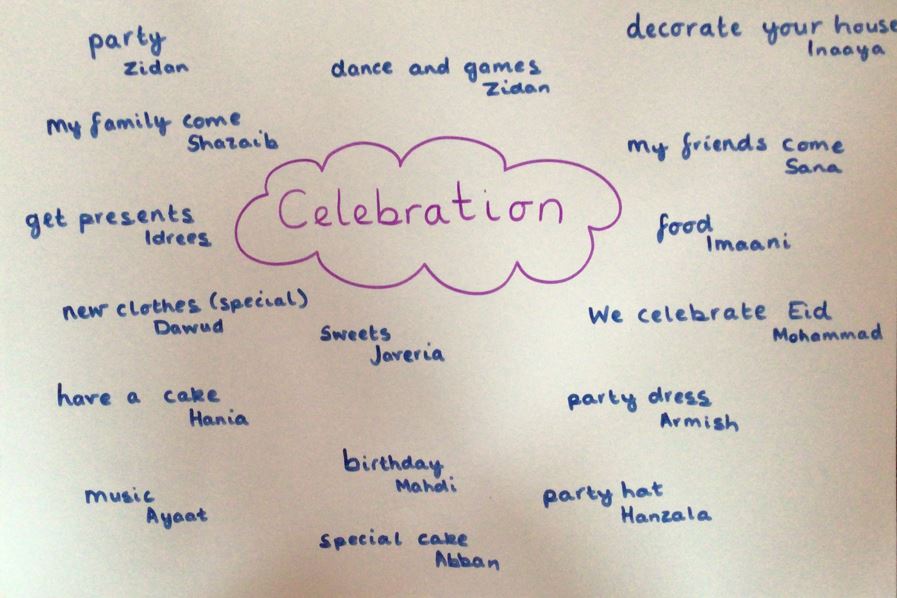 party
Zidan
dance and games
Zidan
decorate your house
Inaaya
my family come
Shazaib
my friends come
Sana
Celebration
get presents
Idrees
food
Imaani
new clothes (special)
Dawud
Sweets
Javeria
We celebrate Eid
Mohammad
have a cake
Hania
party dress
Armish
birthday
Mahdi
music
Ayaat
party hat
Hanzala
special cake
Abban